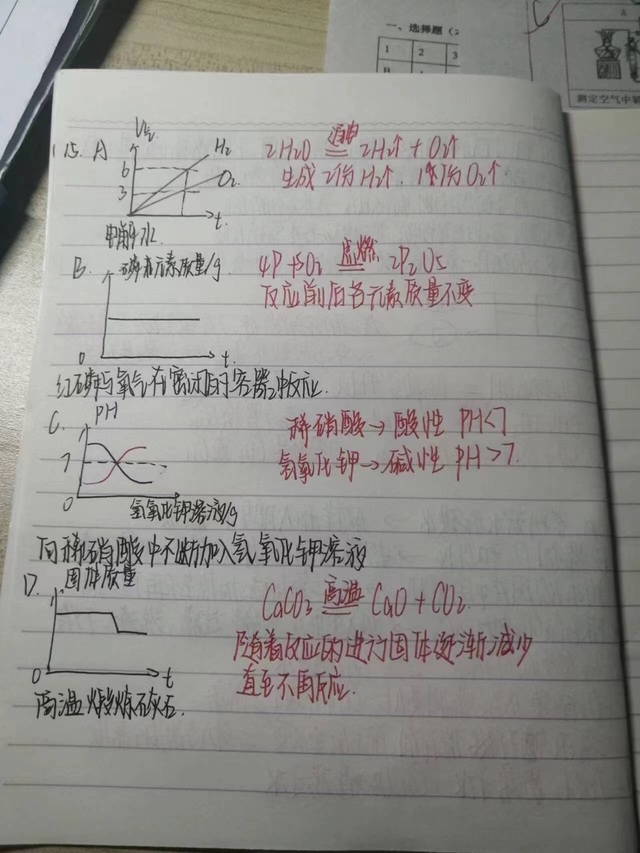 一、选择题（2
1 2 3
测定空气中氧
15. A
V/L
6
3
H₂
O₂
t
电解水
2H₂O 通电 2H₂↑ + O₂↑
生成2份H₂↑, 1份O₂↑
B. 磷元素质量/g
0
t
4P+5O₂ 点燃 2P₂O₅
反应前后各元素质量不变
红磷与氧气在密闭的容器中反应
C. PH
7
0
氢氧化钾溶液/g
稀硝酸→酸性 PH<7
氢氧化钾→碱性 PH>7
向稀硝酸中不断加入氢氧化钾溶液
D. 固体质量
0
t
CaCO₃ 高温 CaO + CO₂
随着反应的进行固体逐渐减少
直至不再反应.
高温煅烧石灰石.